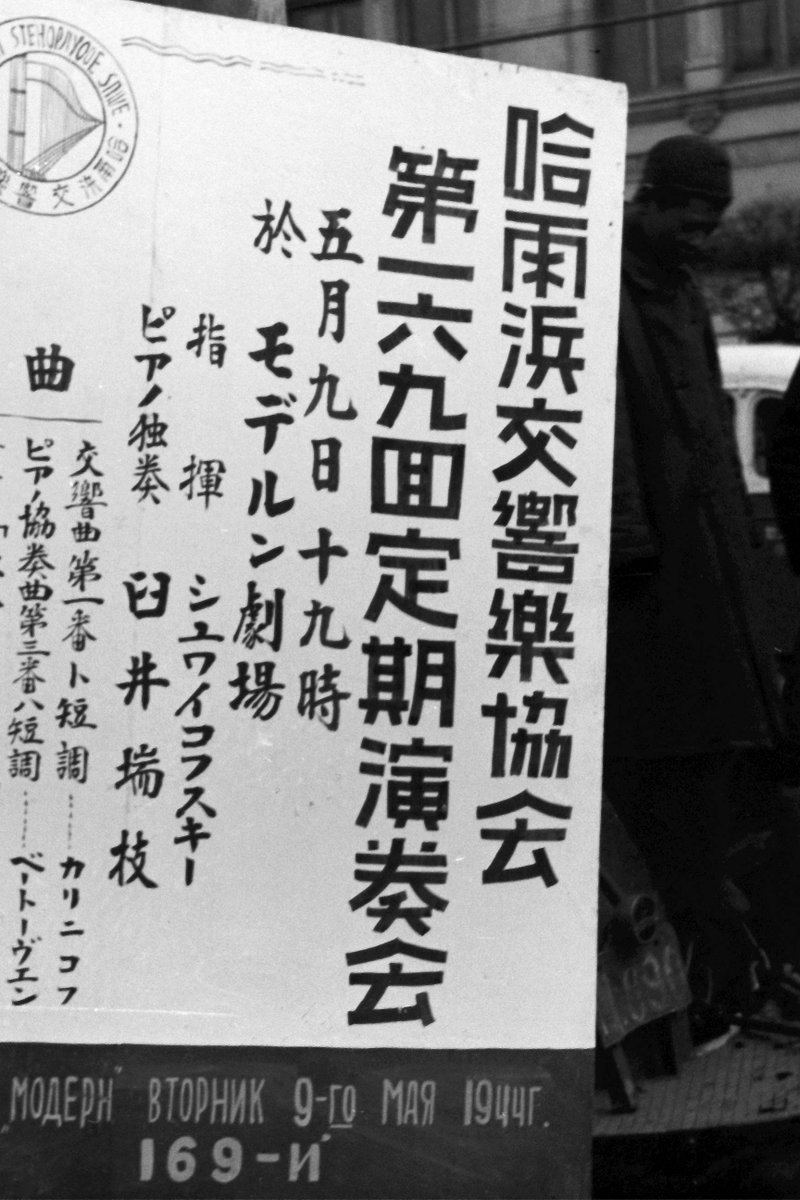 哈雨浜交響樂協会
第一六九回定期演奏会
五月九日十九時
於 モデルン劇場
指揮 シュワイコフスキー
ピアノ独奏 臼井瑞枝
曲
交響曲第一番ト短調……カリニコフ
ピアノ協奏曲第三番ハ短調……ベートーヴエン
"МОДЕРН" ВТОРНИК 9-го МАЯ 1944г.
169-й